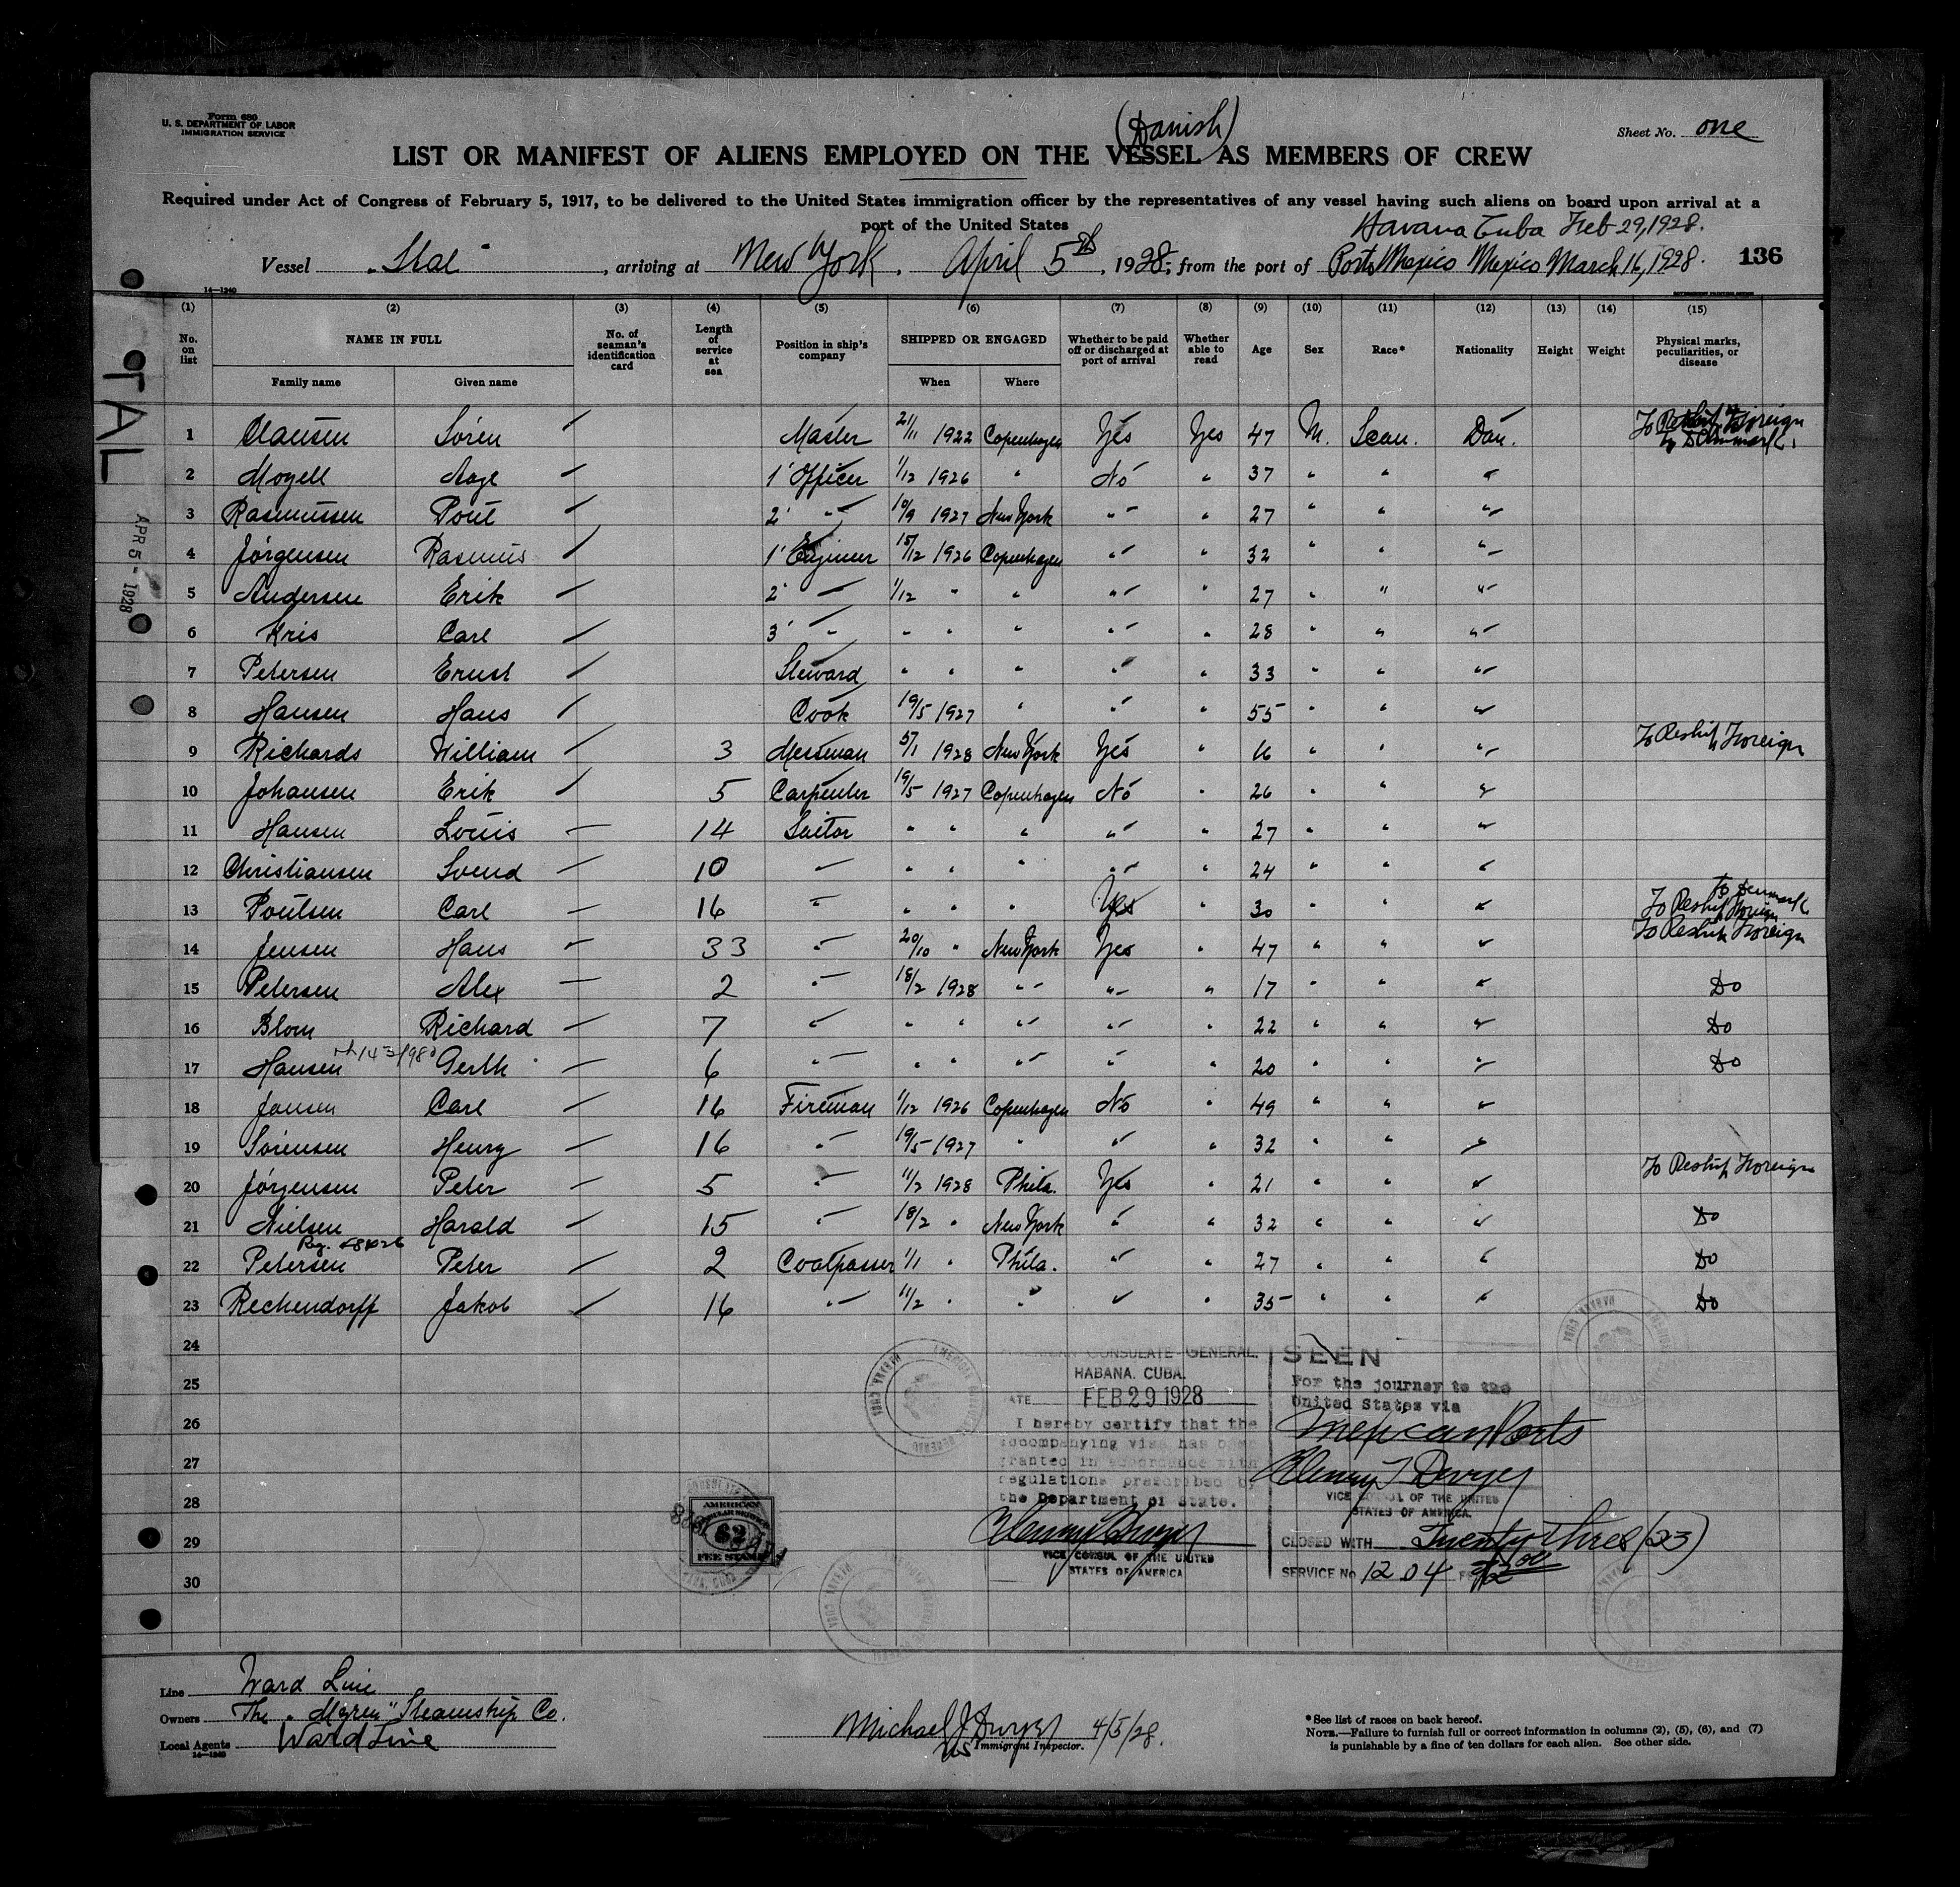 Form 680
U. S. DEPARTMENT OF LABOR
IMMIGRATION SERVICE
(Danish)
Sheet No. one
LIST OR MANIFEST OF ALIENS EMPLOYED ON THE VESSEL AS MEMBERS OF CREW
Required under Act of Congress of February 5, 1917, to be delivered to the United States immigration officer by the representatives of any vessel having such aliens on board upon arrival at a
port of the United States
Havana Cuba Feb 29, 1928.
Vessel "Stal", arriving at New York. April 5th, 1928, from the port of Porto Mexico Mexico March 16, 1928. 136
14—1240
(1) (2) (3) (4) (5) (6) (7) (8) (9) (10) (11) (12) (13) (14) (15)
No. on list NAME IN FULL Family name Given name No. of seaman's identification card Length of service at sea Position in ship's company SHIPPED OR ENGAGED When Where Whether to be paid off or discharged at port of arrival Whether able to read Age Sex Race* Nationality Height Weight Physical marks, peculiarities, or disease
TAL
APR 5 - 1928
1 Clausen Sören Master 21/11 1922 Copenhagen Yes Yes 47 M. Scan. Dan. To Reship Foreign to Denmark.
2 Moyell Aage 1' Officer 1/12 1926 " No " 37 " " "
3 Rasmussen Poul 2' " 10/9 1927 New York " " 27 " " "
4 Jørgensen Rasmus 1' Engineer 15/12 1926 Copenhagen " " 32 " " "
5 Andersen Erik 2' 1/12 " " " " 27 " " "
6 Kris Carl 3' " " " " " " 28 " " "
7 Petersen Ernst Steward " " " " " 33 " " "
8 Hansen Hans Cook 19/5 1927 " " " 55 " " "
9 Richards William 3 Messman 5/1 1928 New York Yes " 16 " " " To Reship Foreign
10 Johansen Erik 5 Carpenter 19/5 1927 Copenhagen No " 26 " " "
11 Hansen Louis 14 Sailor " " " " " 27 " " "
12 Christiansen Svend 10 " " " " " " 24 " " "
13 Poulsen Carl 16 " " " " Yes " 30 " " " to Denmark To Reship Foreign
14 Jensen Hans 33 " 20/10 " New York Yes " 47 " " " To Reship Foreign
15 Petersen Alex 2 " 18/2 1928 " " " 17 " " " Do
16 Blom Richard 7 " " " " " " 22 " " " Do
17 Hansen Gerth 6 " " " " " " 20 " " " Do
18 Jansen Carl 16 Fireman 1/12 1926 Copenhagen No " 49 " " "
19 Sørensen Henry 16 " 19/5 1927 " " " 32 " " "
20 Jørgensen Peter 5 " 11/2 1928 Phila. Yes " 21 " " " To Reship Foreign
21 Nielsen Harald 15 " 18/2 " New York " " 32 " " " Do
22 Petersen Peter 2 Coalpasser 1/1 " Phila. " " 27 " " " Do
23 Rechendorff Jakob 16 " 11/2 " " " " 35 " " " Do
24
25
26
27
28
29
30
AMERICAN CONSULATE-GENERAL.
HABANA. CUBA.
DATE FEB 29 1928
I hereby certify that the
accompanying visa has been
granted in accordance with
regulations prescribed by
the Department of State.
VICE CONSUL OF THE UNITED
STATES OF AMERICA
SEEN
For the journey to the
United States via
Mexican Ports
VICE CONSUL OF THE UNITED
STATES OF AMERICA.
CLOSED WITH Twenty three (23)
SERVICE No 1204
AMERICAN
FEE STAMP
Line Ward Line
Owners The "Myren" Steamship Co.
Local Agents Ward Line
14—1240
Michael J. Dwyer 4/5/28.
US Immigrant Inspector.
*See list of races on back hereof.
NOTE.—Failure to furnish full or correct information in columns (2), (5), (6), and (7)
is punishable by a fine of ten dollars for each alien. See other side.